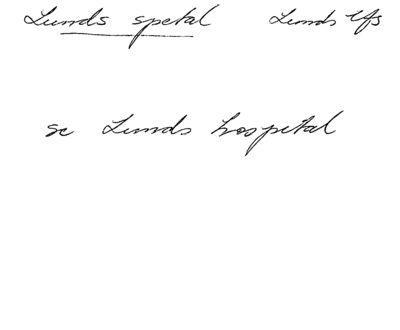 Lunds spetal Lunds lfs
se Lunds hospital